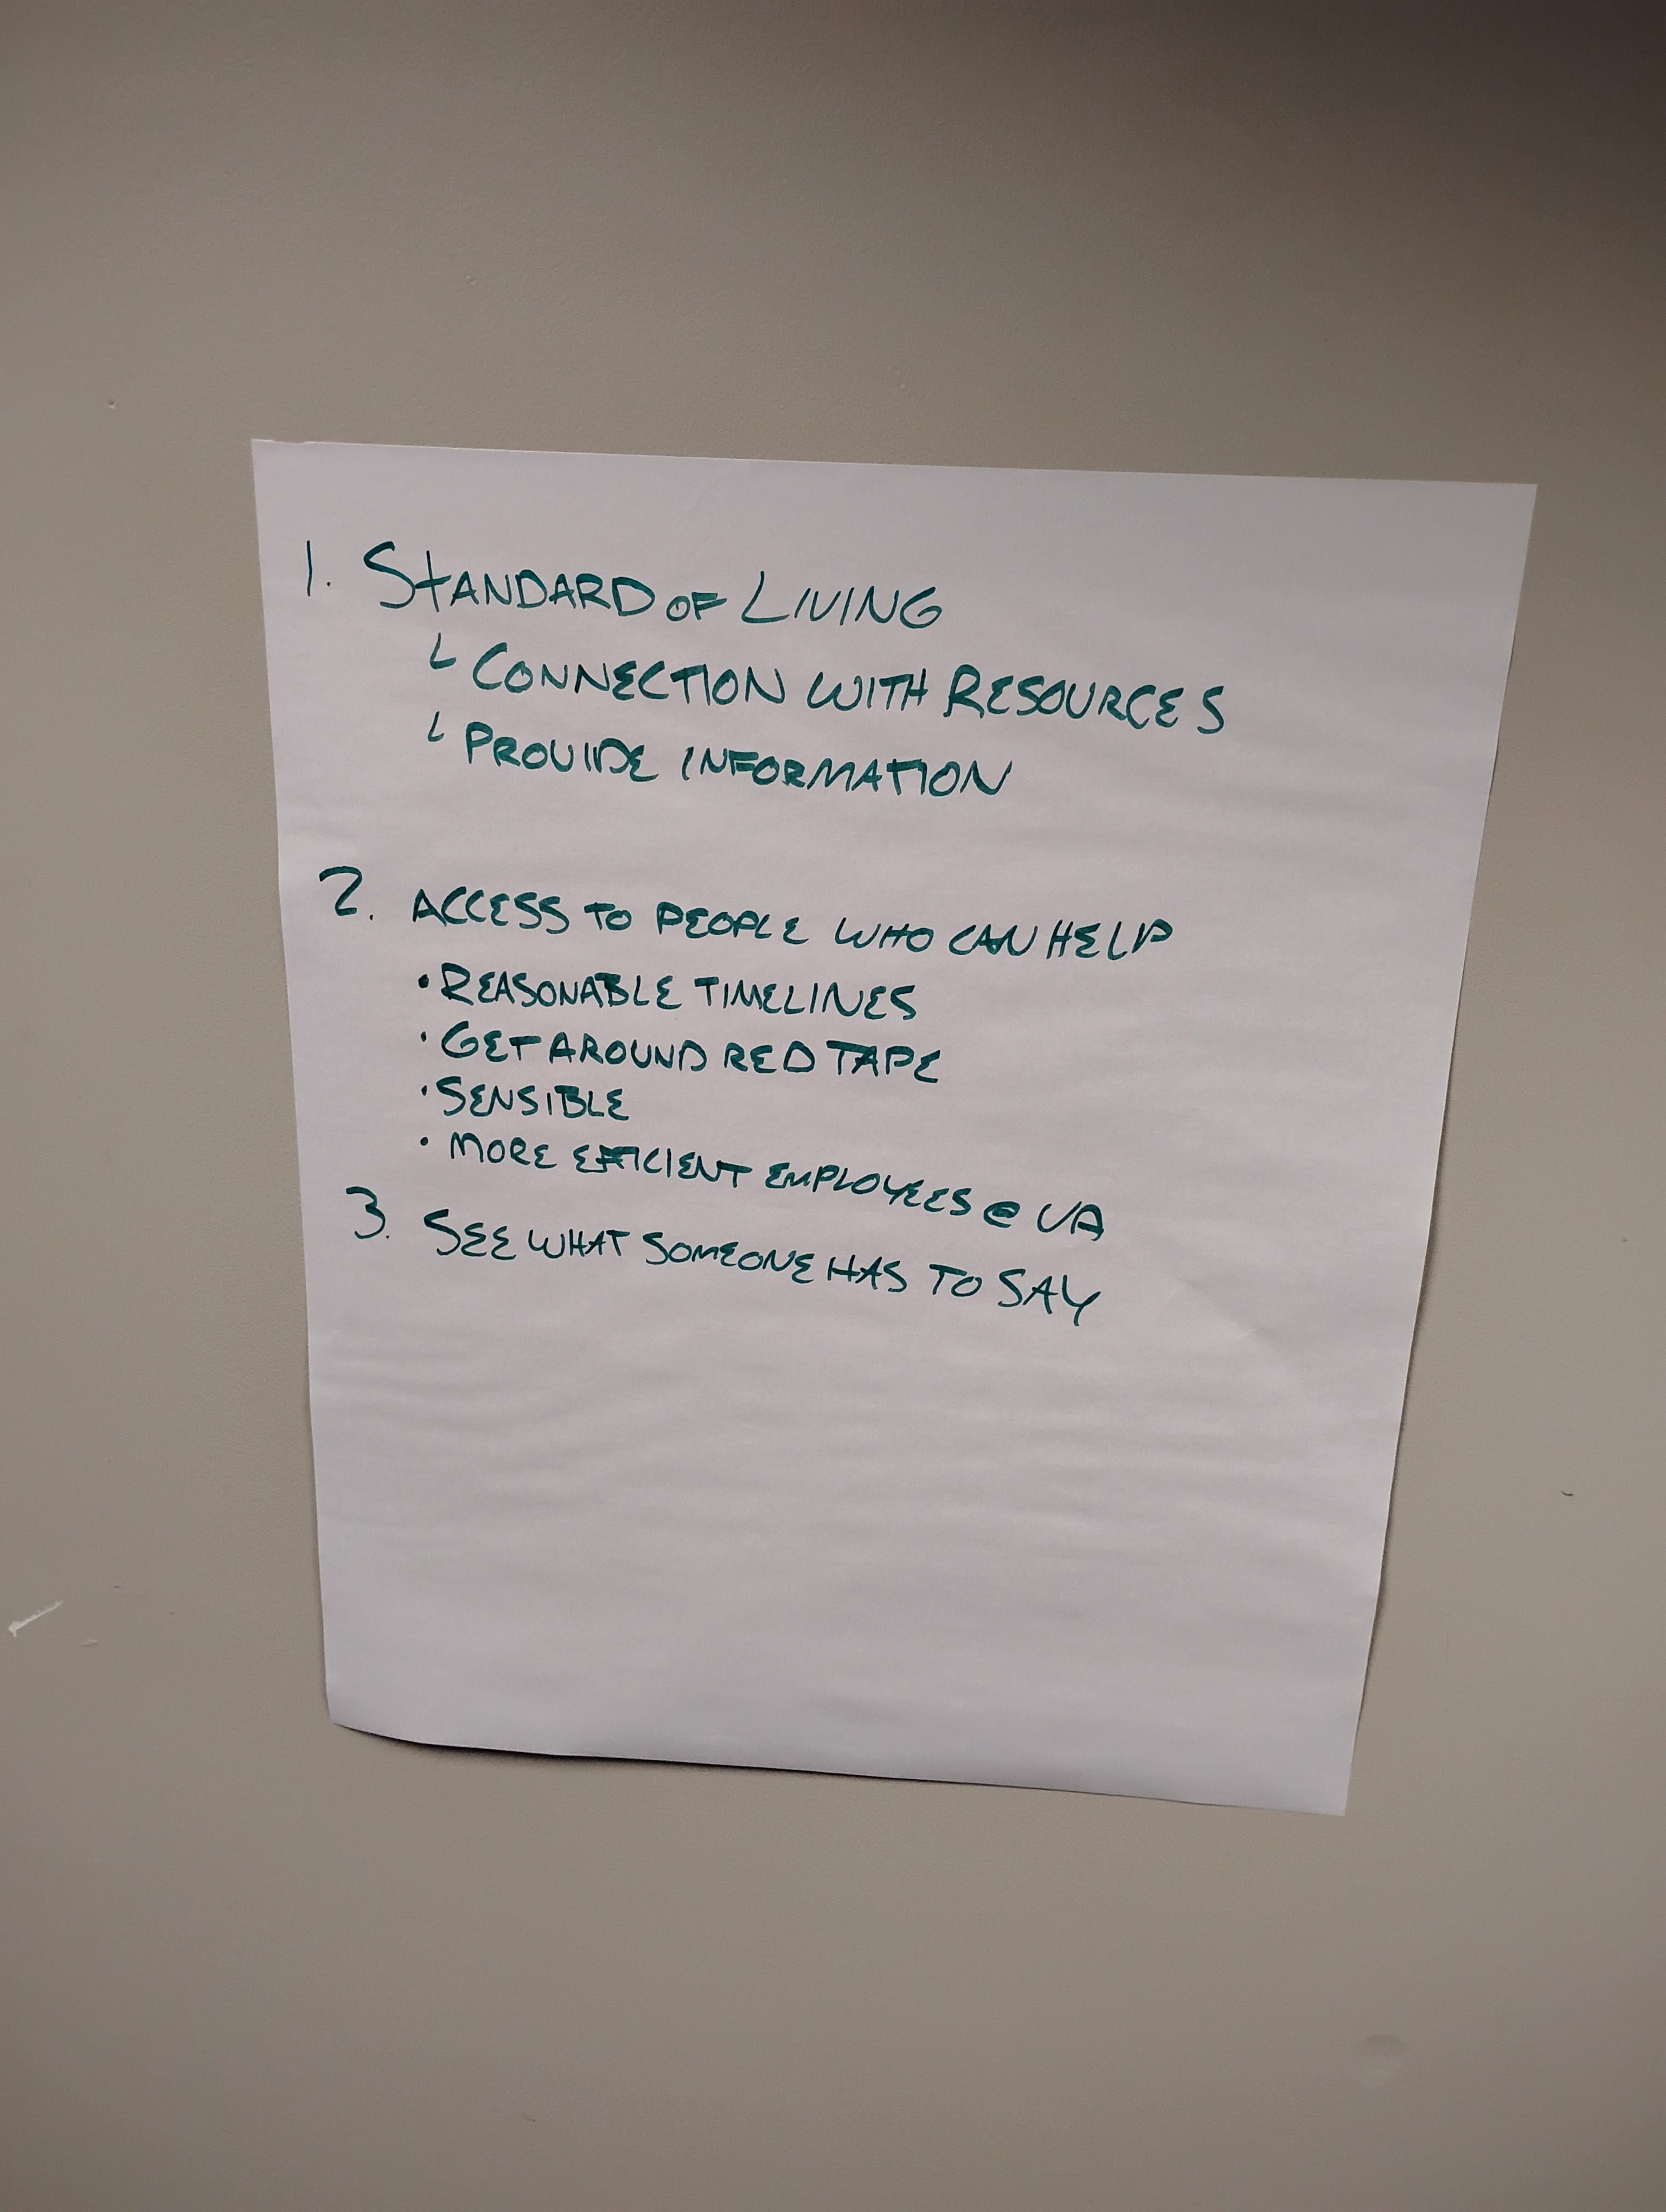 1. STANDARD OF LIVING
└ CONNECTION WITH RESOURCES
└ PROVIDE INFORMATION
2. ACCESS TO PEOPLE WHO CAN HELP
• REASONABLE TIMELINES
• GET AROUND RED TAPE
• SENSIBLE
• MORE EFFICIENT EMPLOYEES @ VA
3. SEE WHAT SOMEONE HAS TO SAY